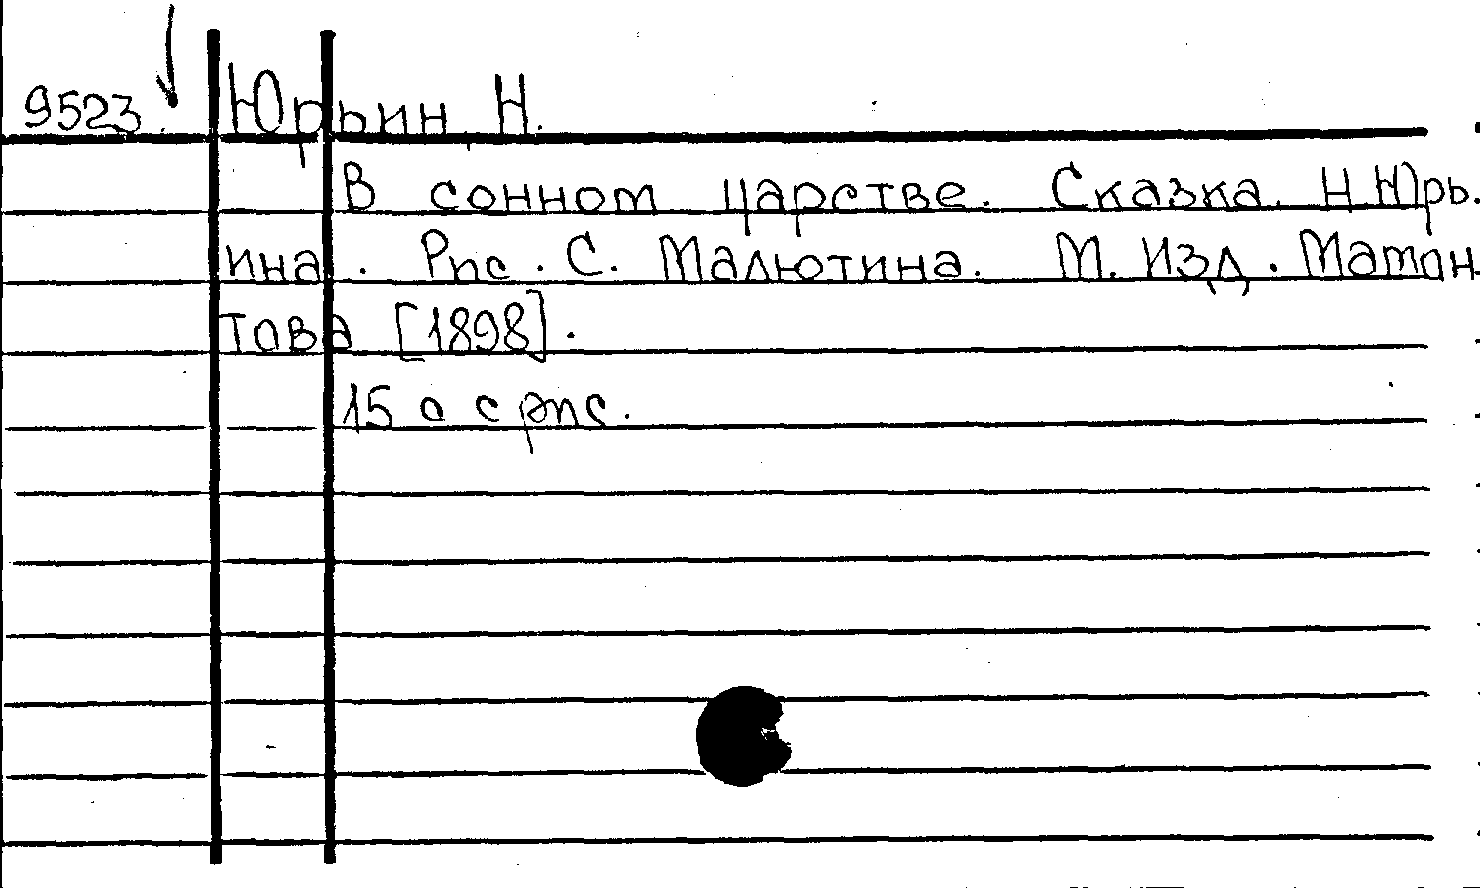 9523. Юрьин, Н.
В сонном царстве. Сказка Н. Юрь-
ина. Рис. С. Малютина. М. Изд. Мамон-
това [1898].
15 с с рис.